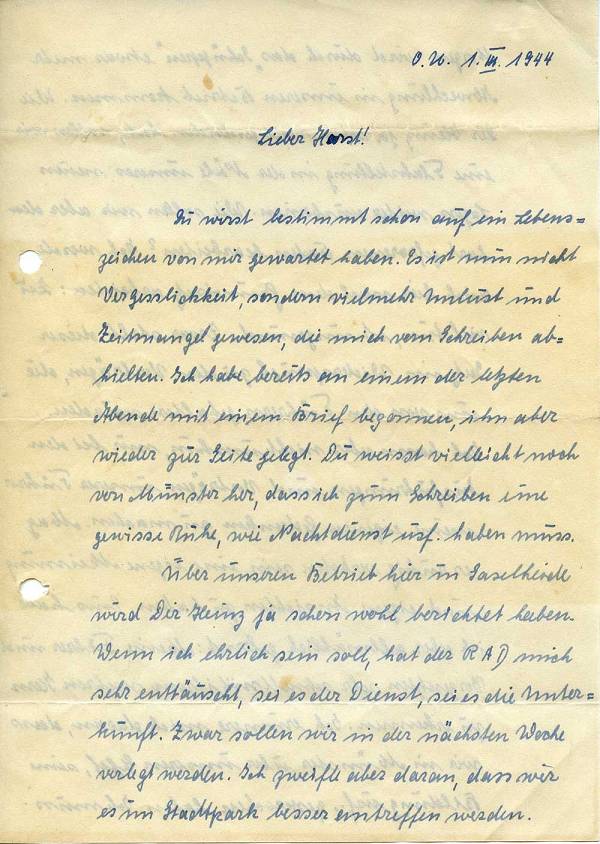 O.U. 1. III. 1944
Lieber Horst!
Du wirst bestimmt schon auf ein Lebens=
zeichen von mir gewartet haben. Es ist nun nicht
Vergesslichkeit, sondern vielmehr Unlust und
Zeitmangel gewesen, die mich vom Schreiben ab=
hielten. Ich habe bereits an einem der letzten
Abende mit einem Brief begonnen, ihn aber
wieder zur Seite gelegt. Du weisst vielleicht noch
von Münster her, dass ich zum Schreiben eine
gewisse Ruhe, wie Nachtdienst usf. haben muss.
Über unseren Betrieb hier in Gaselheide
wird Dir Heinz ja schon wohl berichtet haben.
Wenn ich ehrlich sein soll, hat der RAD mich
sehr enttäuscht, sei es der Dienst, sei es die Unter=
kunft. Zwar sollen wir in der nächsten Woche
verlegt werden. Ich zweifle aber daran, dass wir
es im Stadtpark besser eintreffen werden.